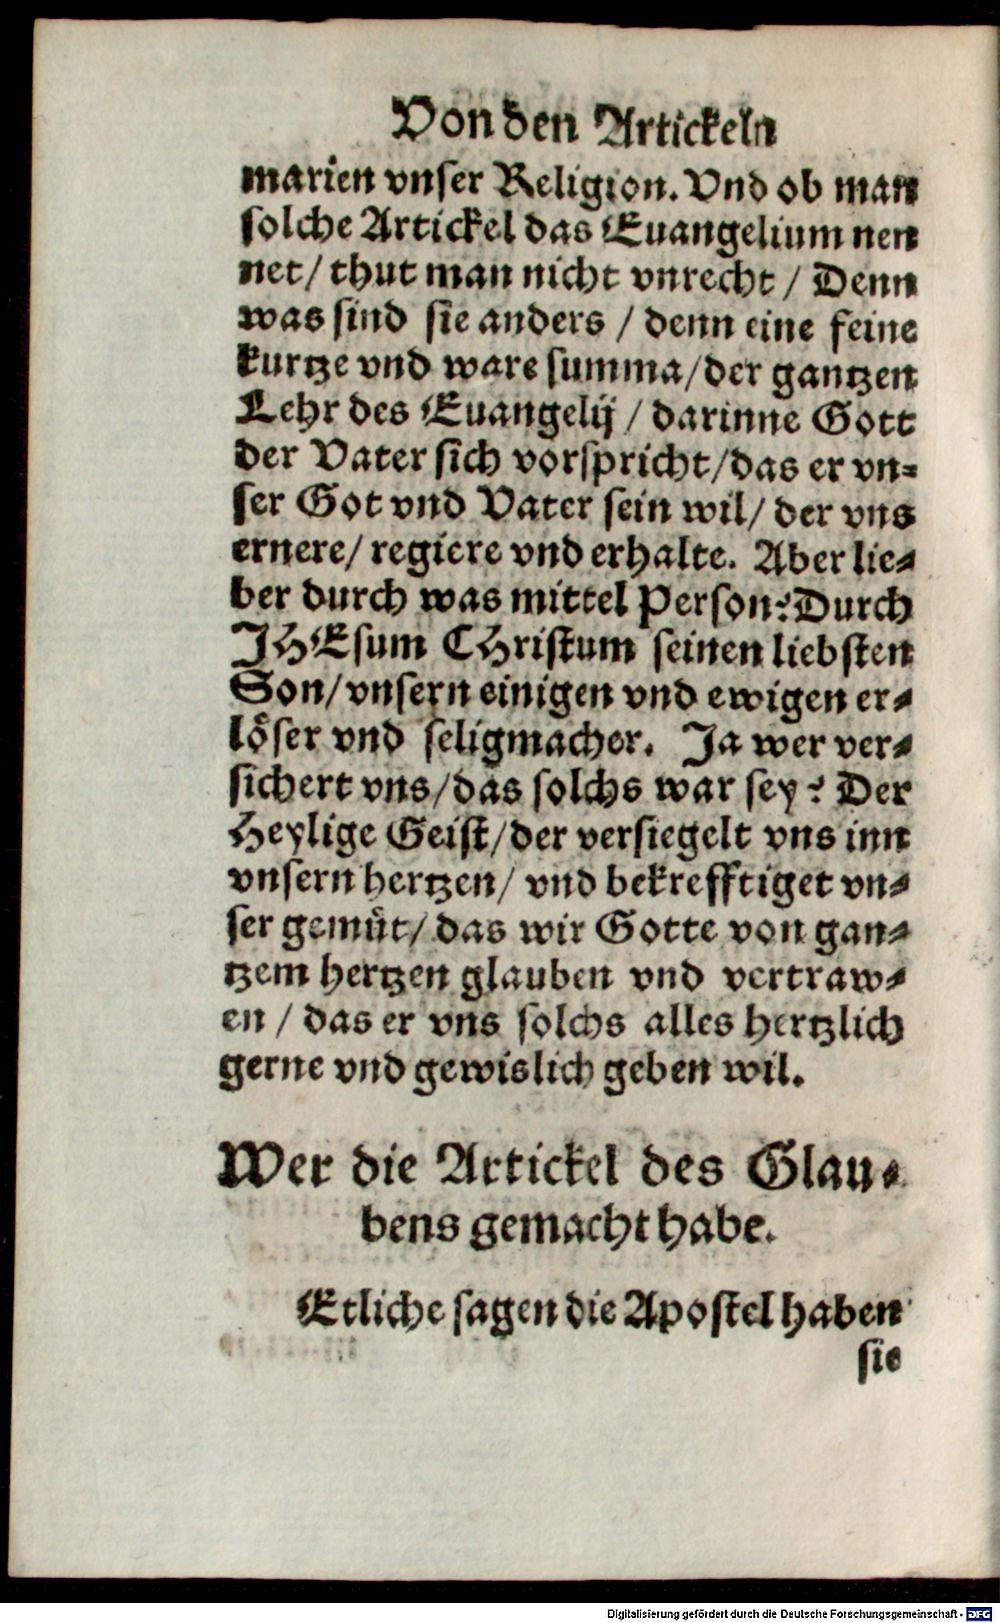 Von den Artickeln
marien vnser Religion. Vnd ob man
solche Artickel das Euangelium nen
net/ thut man nicht vnrecht / Denn
was sind sie anders / denn eine feine
kurtze vnd ware summa/der gantzen
Lehr des Euangelij / darinne Gott
der Vater sich vorspricht/das er vn⸗
ser Got vnd Vater sein wil/ der vns
ernere/ regiere vnd erhalte. Aber lie⸗
ber durch was mittel Person? Durch
JHEsum CHristum seinen liebsten
Son/vnsern einigen vnd ewigen er⸗
löser vnd seligmacher. Ja wer ver⸗
sichert vns/das solchs war sey? Der
Heylige Geist/der versiegelt vns inn
vnsern hertzen/ vnd bekrefftiget vn⸗
ser gemüt/ das wir Gotte von gan⸗
tzem hertzen glauben vnd vertraw⸗
en / das er vns solchs alles hertzlich
gerne vnd gewislich geben wil.
Wer die Artickel des Glau⸗
bens gemacht habe.
Etliche sagen die Apostel haben
sie
Digitalisierung gefördert durch die Deutsche Forschungsgemeinschaft - DFG